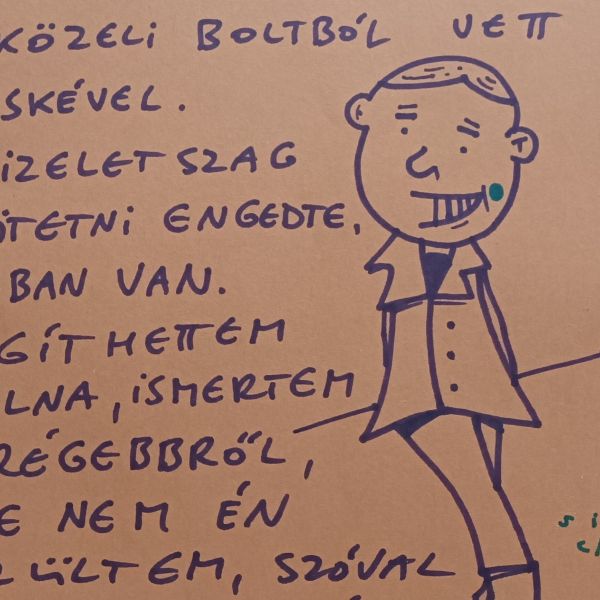 KÖZELI BOLTBÓL VETT
SKÉVEL.
IZELETSZAG
TETNI ENGEDTE,
BAN VAN.
GÍTHETTEM
LNA, ISMERTEM
RÉGEBBRŐL,
E NEM ÉN
ÜLTEM, SZÓVAL